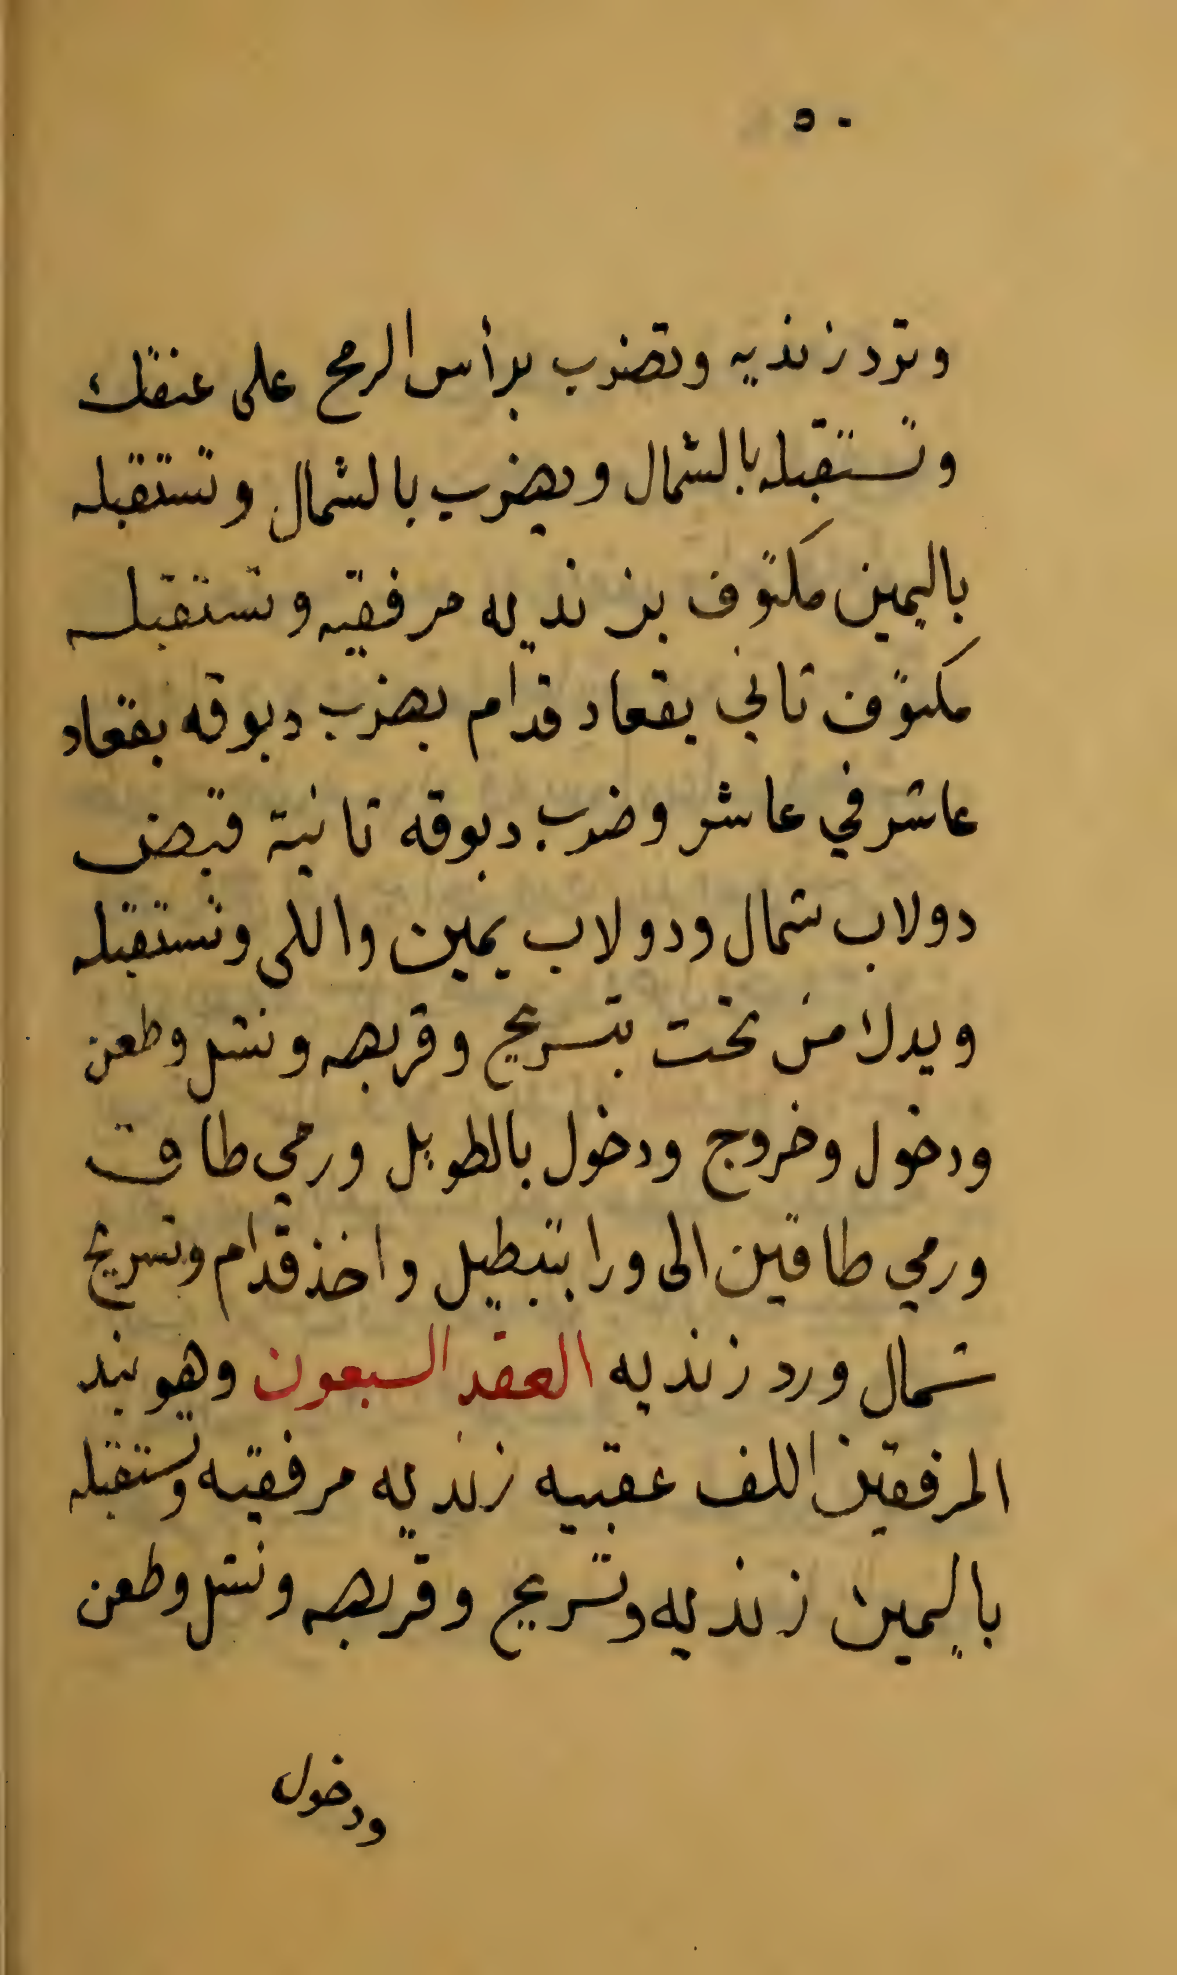 ٥٠
وترد زنديه وتضرب برأس الرمح على عنقك
وتستقبله بالشمال ويضرب بالشمال وتستقبله
باليمين مكتوف بزنديه مرفقيه وتستقبله
مكتوف تاني بقعاد قدام بضرب دبوقه بقعاد
عاشر في عاشر وضرب دبوقه تانية قبض
دولاب شمال ودولاب يمين واللى وتستقبله
ويدك من تحت بتسريح وقربصه ونشل وطعن
ودخول وخروج ودخول بالطويل ورمي طاق
ورمي طاقين الى ورا بتبطيل واخذ قدام وتسريح
شمال ورد زنديه العقد السبعون وهو بند
المرفقين اللف عقبيه زنديه مرفقيه وتستقبله
باليمين زنديه وتسريح وقربصه ونشل وطعن
ودخول